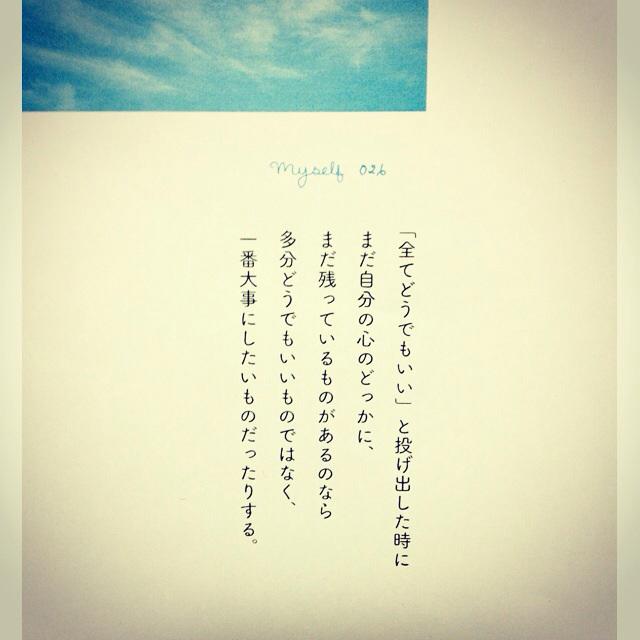 Myself 026
「全てどうでもいい」と投げ出した時に
まだ自分の心のどっかに、
まだ残っているものがあるのなら
多分どうでもいいものではなく、
一番大事にしたいものだったりする。